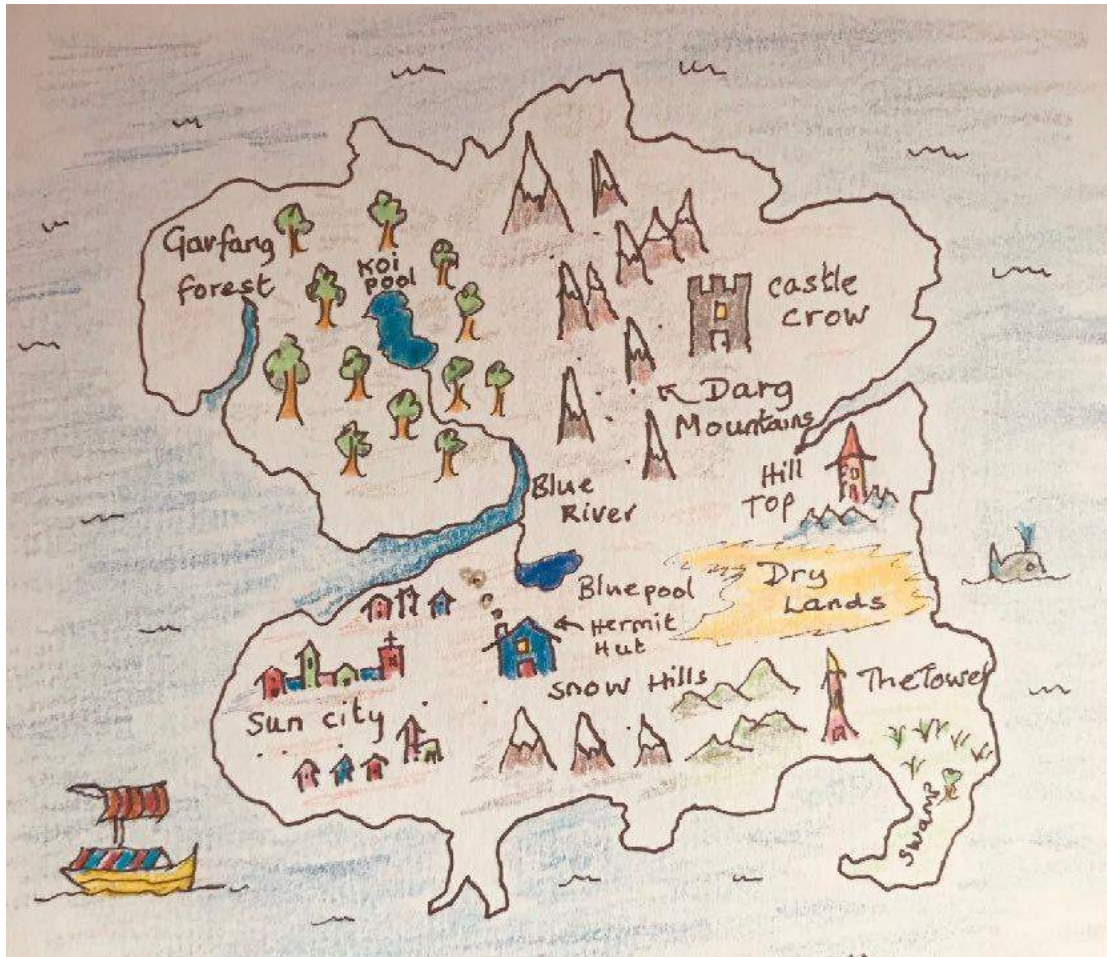 Garfang
forest
Koi
pool
castle
crow
Darg
Mountains
Hill
Top
Blue
River
Bluepool
Dry
Lands
Hermit
Hut
Snow Hills
The Tower
Sun city
Swamp